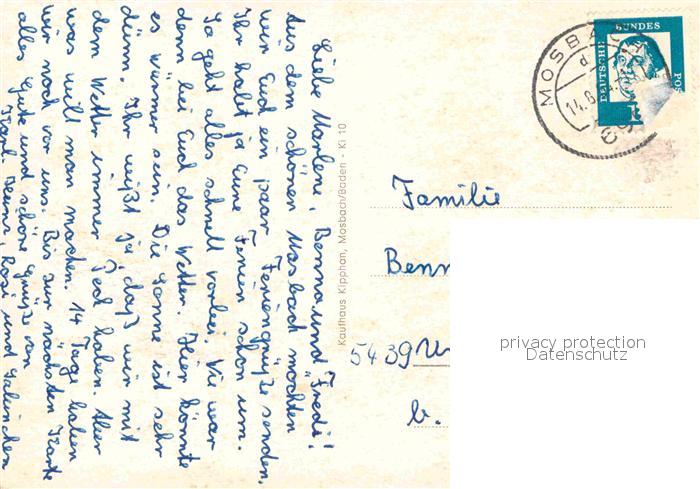 Liebe Marlene, Benno und Fredi!
Aus dem schönen Mosbach möchten
wir Euch ein paar Feriengrüße senden,
Ihr habt ja Eure Ferien schon um.
Ja geht alles schnell vorbei. Wie war
denn bei Euch das Wetter. Hier könnte
es wärmer sein. Die Sonne ist sehr
dünn. Ihr wißt ja, daß wir mit
dem Wetter immer Pech haben. Aber
was will man machen. 14 Tage haben
wir noch vor uns. Bis zur nächsten Karte
alles Gute und schöne Grüße von
Karl-Heinz, Rosi und
Kaufhaus Kipphan, Mosbach/Baden - Ki 10
MOSBACH
14.8.
DEUTSCHE BUNDES POS
Familie
Benn
5439
b.
privacy protection
Datenschutz